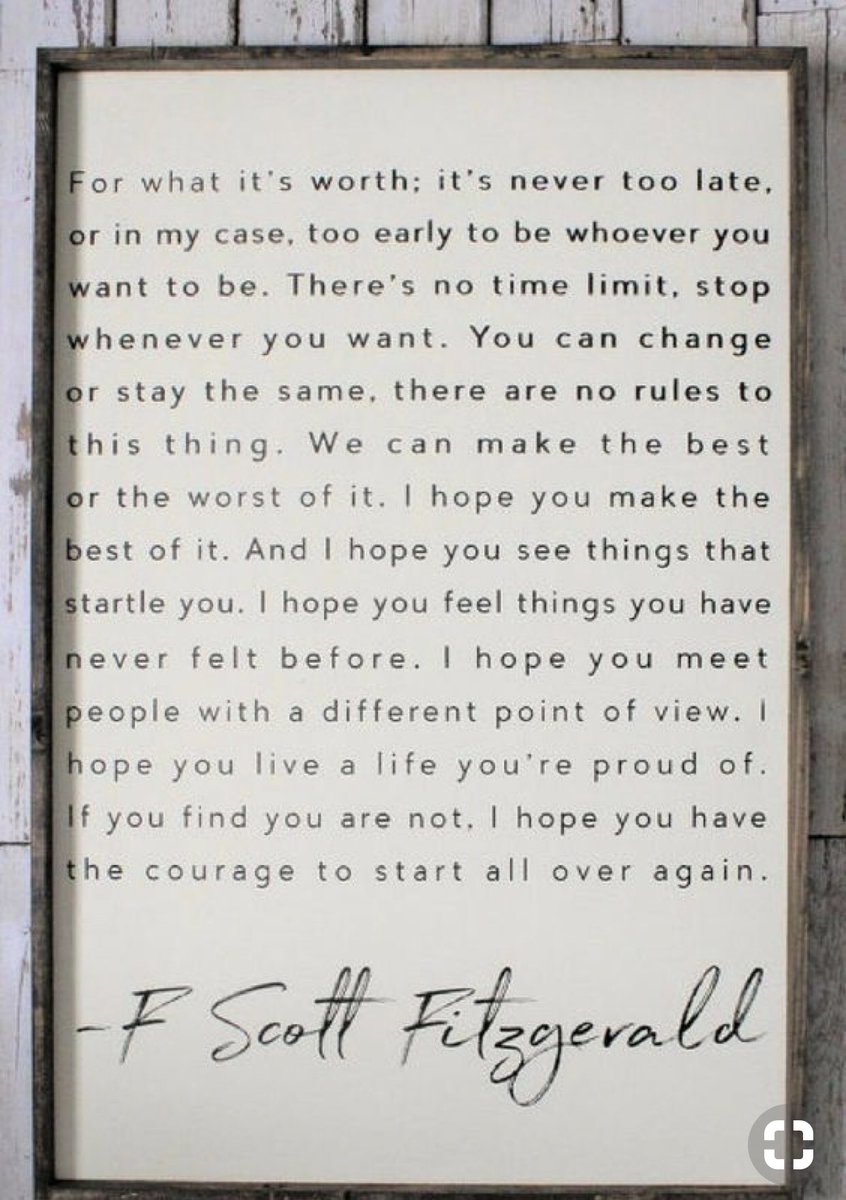 For what it's worth; it's never too late,
or in my case, too early to be whoever you
want to be. There's no time limit, stop
whenever you want. You can change
or stay the same, there are no rules to
this thing. We can make the best
or the worst of it. I hope you make the
best of it. And I hope you see things that
startle you. I hope you feel things you have
never felt before. I hope you meet
people with a different point of view. I
hope you live a life you're proud of.
If you find you are not, I hope you have
the courage to start all over again.
-F Scott Fitzgerald